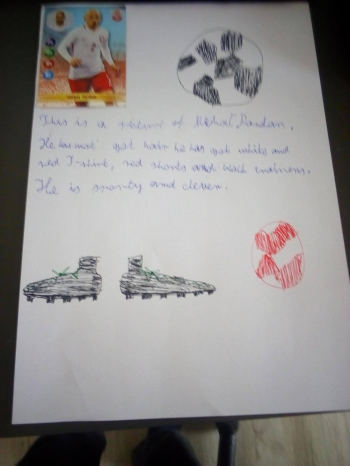 This is a picture of Michał Pazdan.
He hasn't got hair he has got white and
red T-shirt, red shorts and black trainers.
He is sporty and clever.